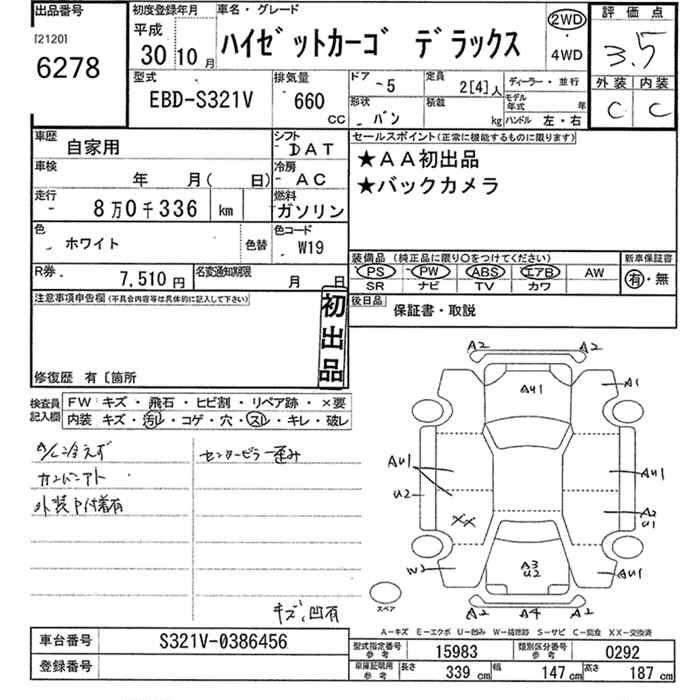 出品番号
[2120]
6278
初度登録年月
平成
30 10 月
車名・グレード
ハイゼットカーゴ デラックス
2WD
・
4WD
評価点
3.5
外装 内装
C C
型式
EBD-S321V
排気量
660
cc
ドア
- 5
定員
2[4]人
形状
バン
積載
kg
ディーラー・並行
モデル年式 年
ハンドル 左・右
車歴
自家用
シフト
DAT
車検
年 月( 日)
冷房
AC
走行
8万0千336 km
燃料
ガソリン
色
ホワイト
色替
色コード
W19
R券
7,510円
名変通知期限
月 日
セールスポイント(正常に機能するものに限ります)
★AA初出品
★バックカメラ
装備品 (純正品に限り○をつけてください)
PS PW ABS エアB AW
SR ナビ TV カワ
新車保証書
有・無
後日品
保証書・取説
注意事項申告欄(不具合内容等は具体的に記入して下さい)
初出品
修復歴 有〔箇所
検査員
記入欄
FW キズ・飛石・ヒビ割・リペア跡・×要
内装 キズ・汚レ・コゲ・穴・スレ・キレ・破レ
A/C冷えず
センターピラー歪み
外装P付着有
キズ、凹有
A2 A2
AU1
A1
AU1
U2
XX
AU1
A2
U1
W2
A3
U2
AU1
A2 A4 A2
スペア
A-キズ E-エクボ U-凹み W-補修跡 S-サビ C-腐食 XX-交換済
車台番号
S321V-0386456
登録番号
型式指定番号
参考
15983
類別区分番号
参考
0292
車庫証明用
参考
長さ 339 cm
幅 147 cm
高さ 187 cm